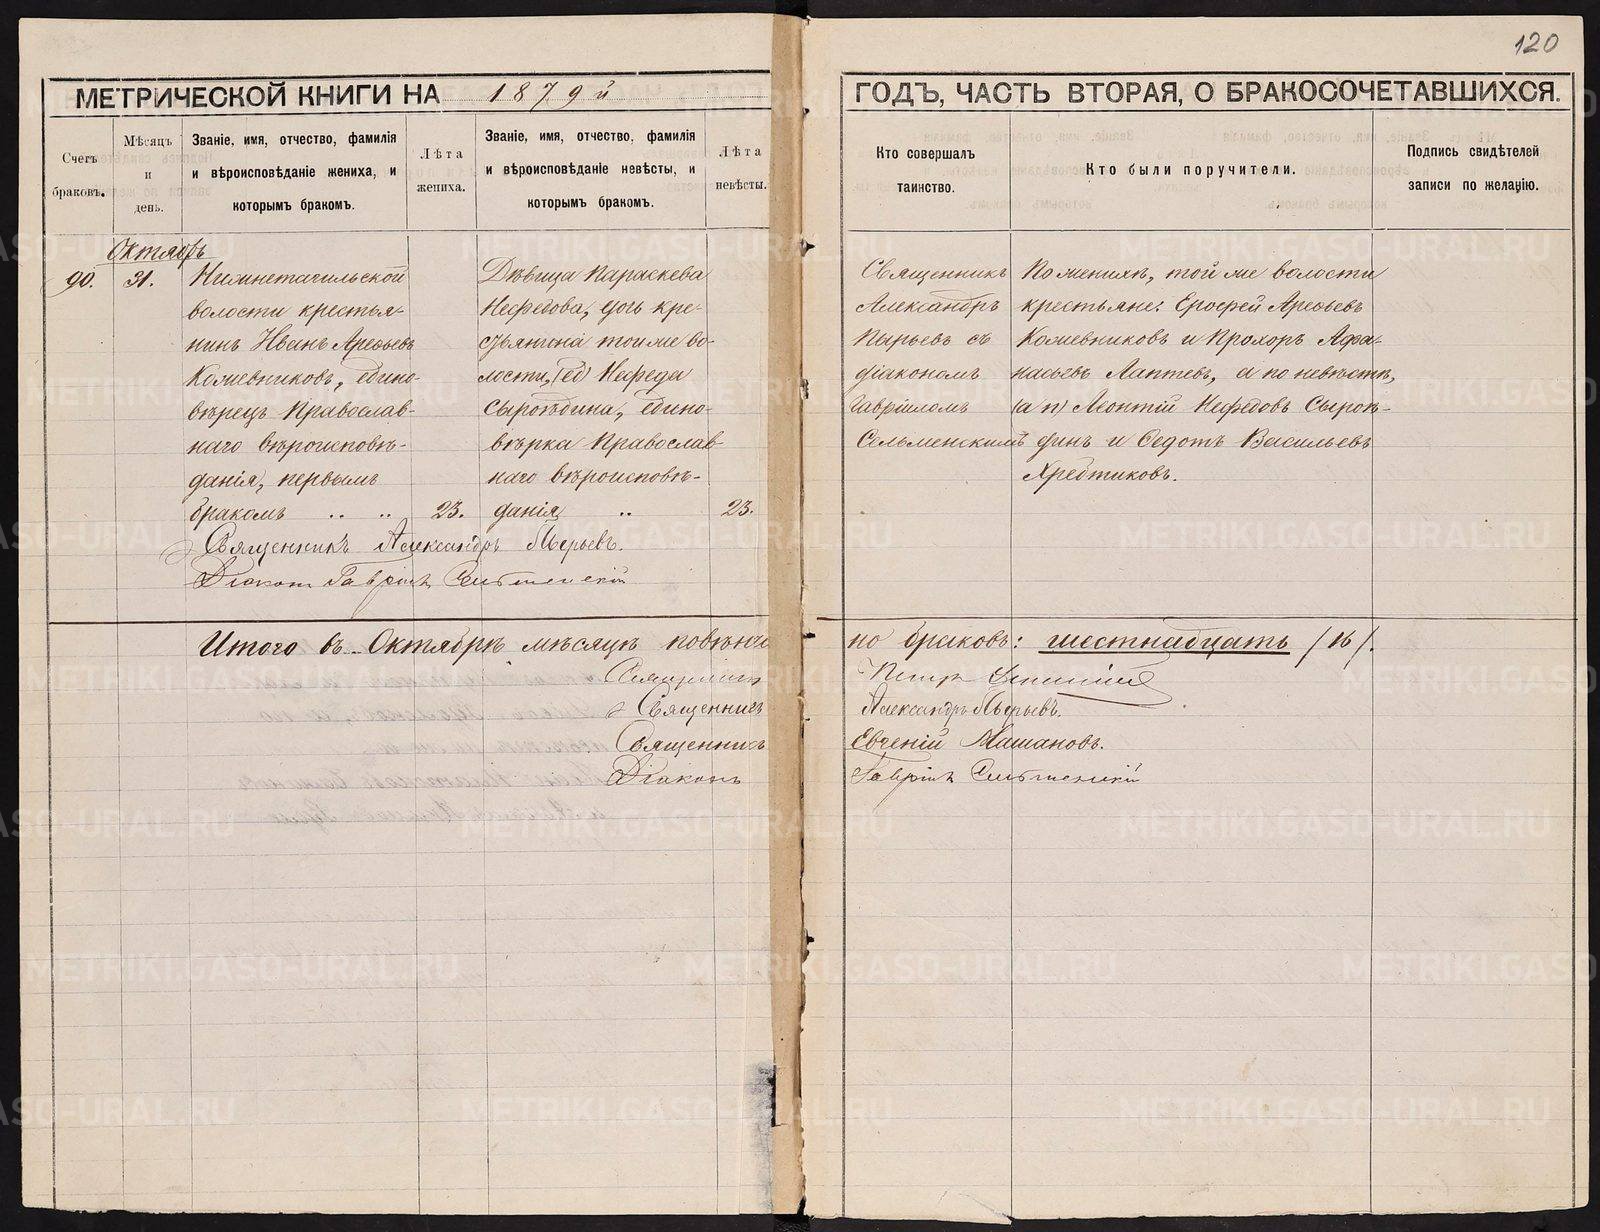 120
МЕТРИЧЕСКОЙ КНИГИ НА 1879й ГОДЪ, ЧАСТЬ ВТОРАЯ, О БРАКОСОЧЕТАВШИХСЯ.
Счетъ браковъ.
Мѣсяцъ и день.
Званіе, имя, отчество, фамилія
и вѣроисповѣданіе жениха, и
которымъ бракомъ.
Лѣта жениха.
Званіе, имя, отчество, фамилія
и вѣроисповѣданіе невѣсты, и
которымъ бракомъ.
Лѣта невѣсты.
Кто совершалъ
таинство.
Кто были поручители.
Подпись свидѣтелей
записи по желанію.
Октябрь
90.
31.
Нижнетагильской
волости крестья-
нинъ Иванъ Арефьевъ
Кожевниковъ, едино-
вѣрецъ Православ-
наго вѣроисповѣ-
данія, первымъ
бракомъ .. ..
23.
Дѣвица Параскева
Нефедова, дочь кре-
стьянина тойже во-
лости, (ед) Нефеда
Сыроѣдина, едино-
вѣрка Православ-
наго вѣроисповѣ-
данія ..
23.
Священникъ
Александръ
Пырьевъ съ
діакономъ
Гавріиломъ
Сельменскимъ
По женихѣ, той же волости
крестьяне: Ерофей Арефьевъ
Кожевниковъ и Прохоръ Афа-
насьевъ Лаптевъ, а по невѣстѣ,
(а п) Леонтій Нефедовъ Сыроѣ-
динъ и Федотъ Васильевъ
Хребтиковъ.
Священникъ Александръ Пырьевъ.
Діаконъ Гавріилъ Сельменскій
Итого въ Октябрѣ мѣсяцѣ повѣнча
но браковъ: шестнадцать /16/.
Священникъ Петръ
Священникъ Александръ Пырьевъ.
Священникъ Евгеній Машановъ.
Діаконъ Гавріилъ Сельменскій
METRIKI.GASO-URAL.RU